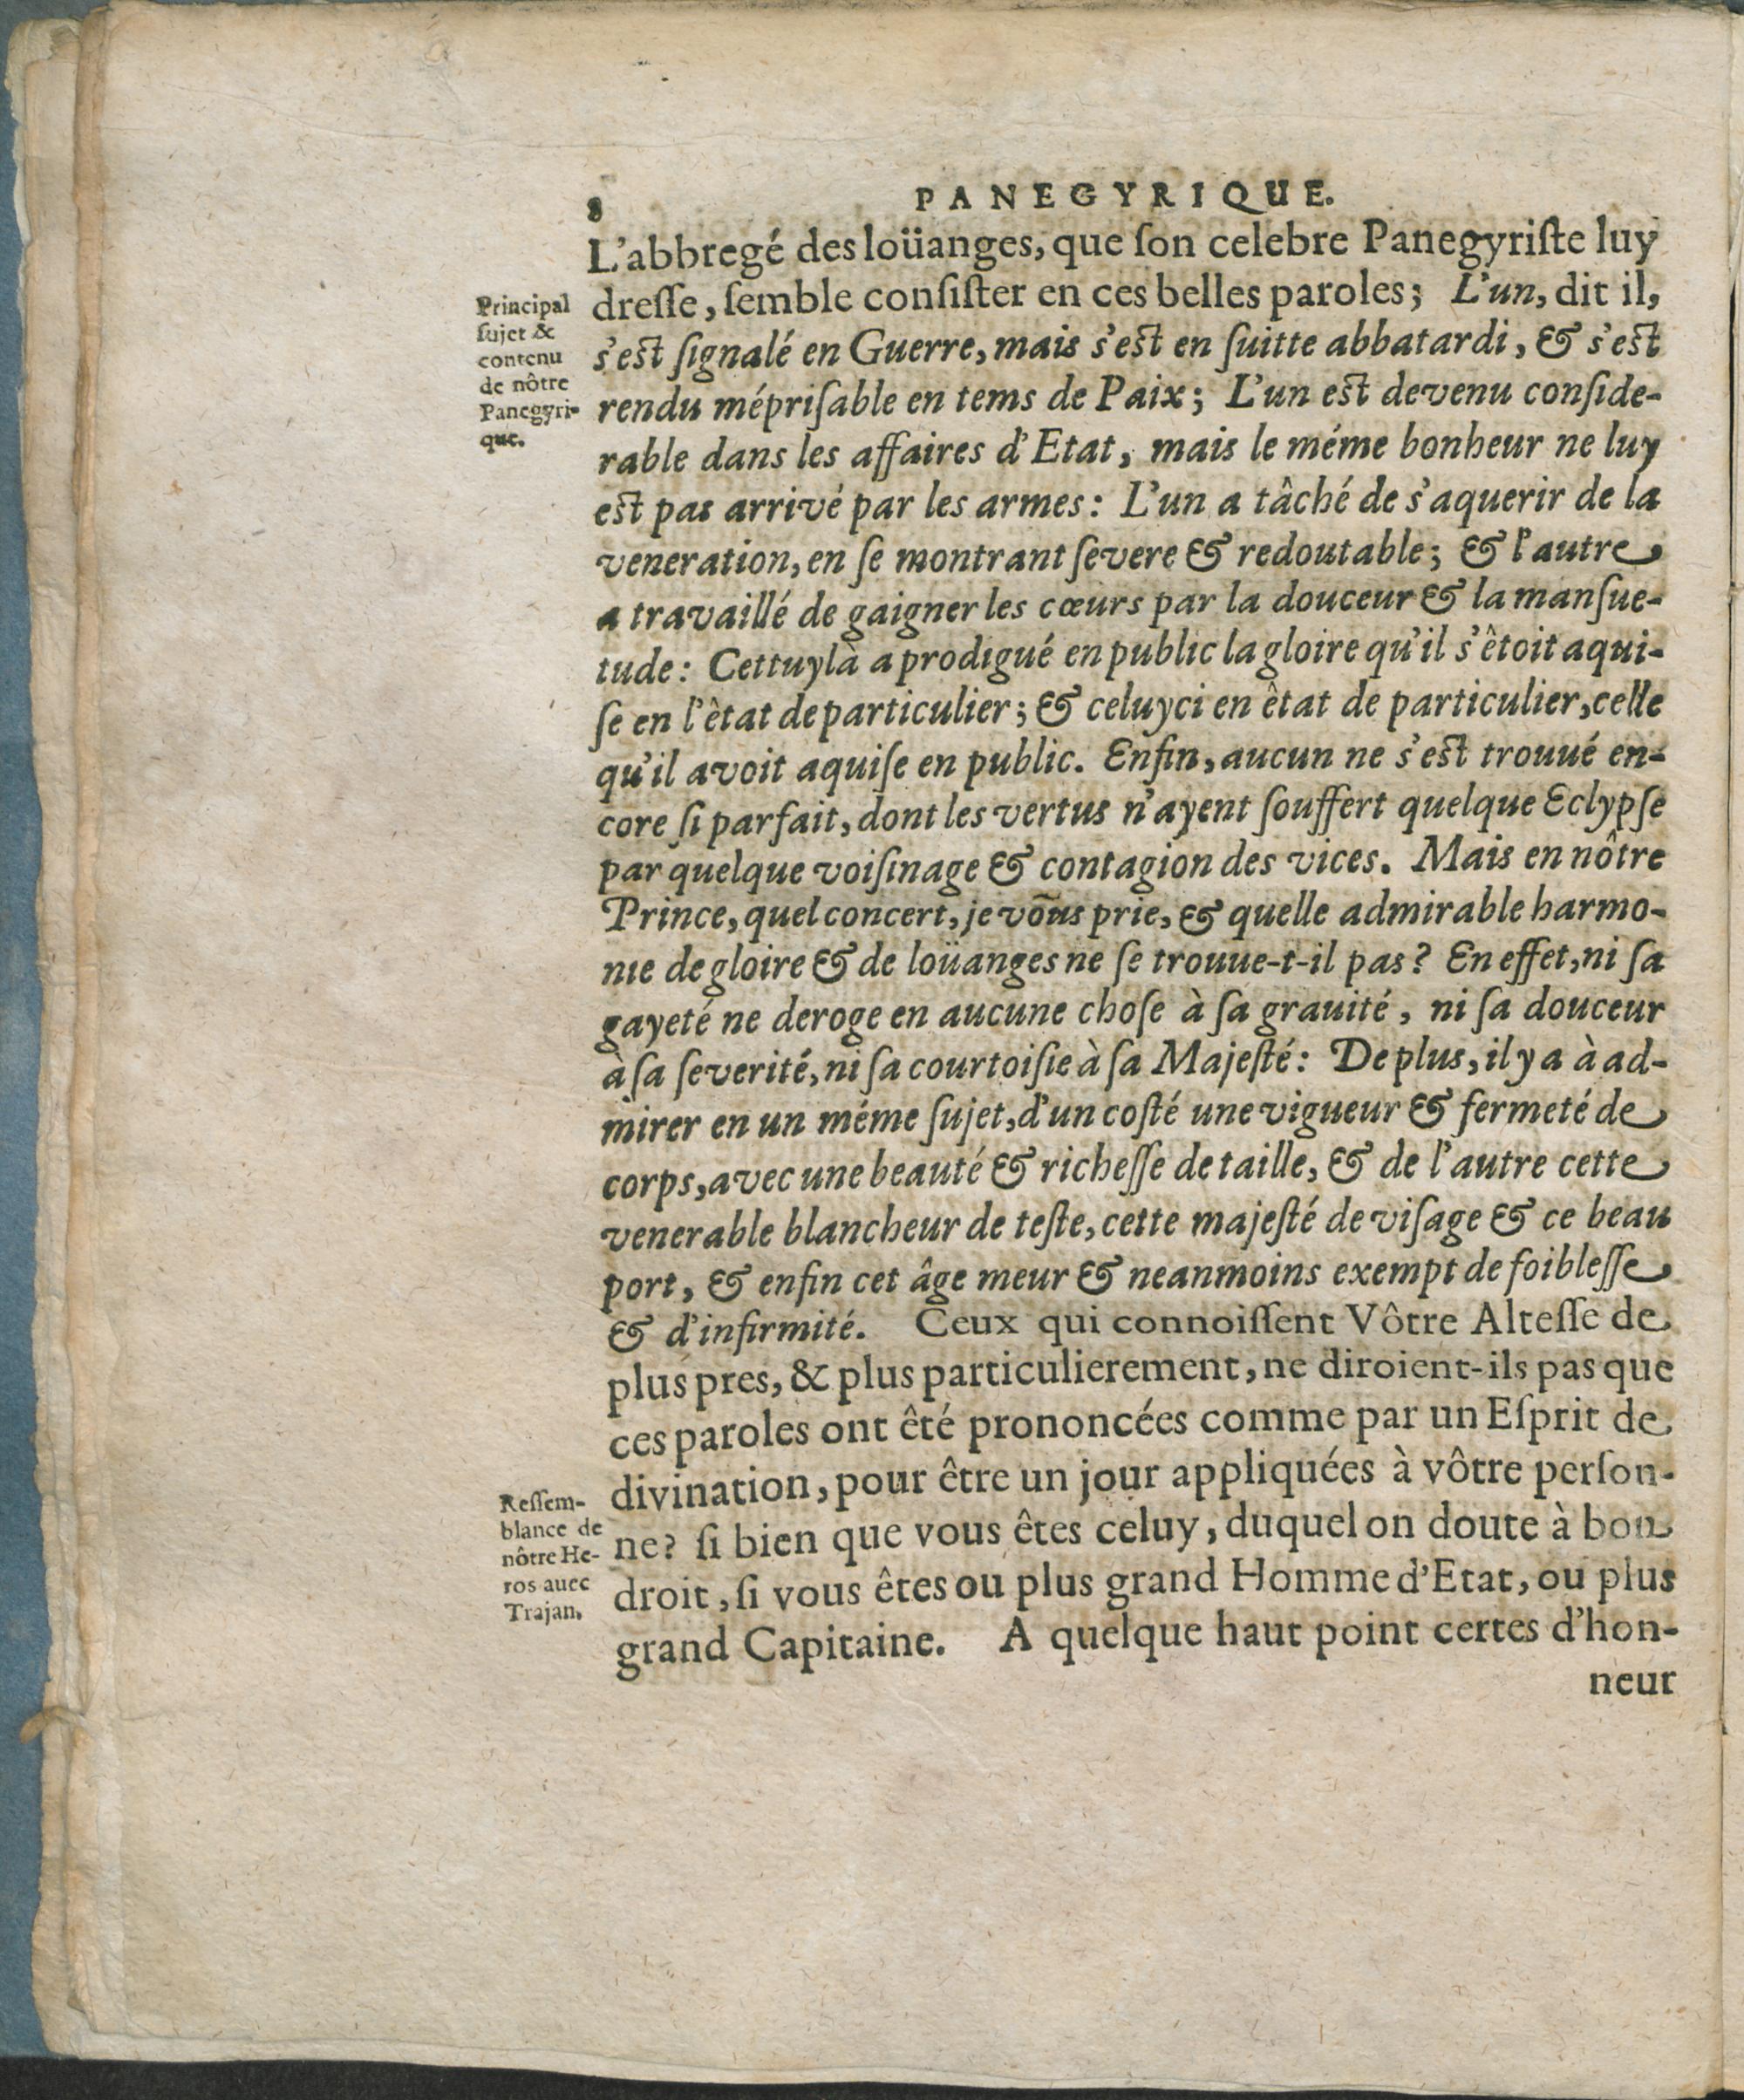 8
PANEGYRIQUE.
L'abbregé des loüanges, que ſon celebre Panegyriſte luy
dreſſe, ſemble conſiſter en ces belles paroles; L'un, dit il,
s'eſt ſignalé en Guerre, mais s'eſt en ſuitte abbatardi, & s'eſt
rendu mépriſable en tems de Paix; L'un eſt devenu conſide-
rable dans les affaires d'Etat, mais le méme bonheur ne luy
eſt pas arrivé par les armes: L'un a tâché de s'aquerir de la
veneration, en ſe montrant ſevere & redoutable; & l'autre
a travaillé de gaigner les cœurs par la douceur & la manſue-
tude: Cettuylà a prodigué en public la gloire qu'il s'êtoit aqui-
ſe en l'êtat de particulier; & celuyci en êtat de particulier, celle
qu'il avoit aquiſe en public. Enfin, aucun ne s'eſt trouué en-
core ſi parfait, dont les vertus n'ayent ſouffert quelque Eclypſe
par quelque voiſinage & contagion des vices. Mais en nôtre
Prince, quel concert, je vous prie, & quelle admirable harmo-
nie de gloire & de loüanges ne ſe trouue-t-il pas? En effet, ni ſa
gayeté ne deroge en aucune choſe à ſa grauité, ni ſa douceur
à ſa ſeverité, ni ſa courtoiſie à ſa Majeſté: De plus, il y a à ad-
mirer en un méme ſujet, d'un coſté une vigueur & fermeté de
corps, avec une beauté & richeſſe de taille, & de l'autre cette
venerable blancheur de teſte, cette majeſté de viſage & ce beau
port, & enfin cet âge meur & neanmoins exempt de foibleſſe
& d'infirmité. Ceux qui connoiſſent Vôtre Alteſſe de
plus pres, & plus particulierement, ne diroient-ils pas que
ces paroles ont êté prononcées comme par un Eſprit de
divination, pour être un jour appliquées à vôtre perſon-
ne? ſi bien que vous êtes celuy, duquel on doute à bon
droit, ſi vous êtes ou plus grand Homme d'Etat, ou plus
grand Capitaine. A quelque haut point certes d'hon-
neur
Principal
ſujet &
contenu
de nôtre
Panegyri-
que.
Reſſem-
blance de
nôtre He-
ros auec
Trajan.